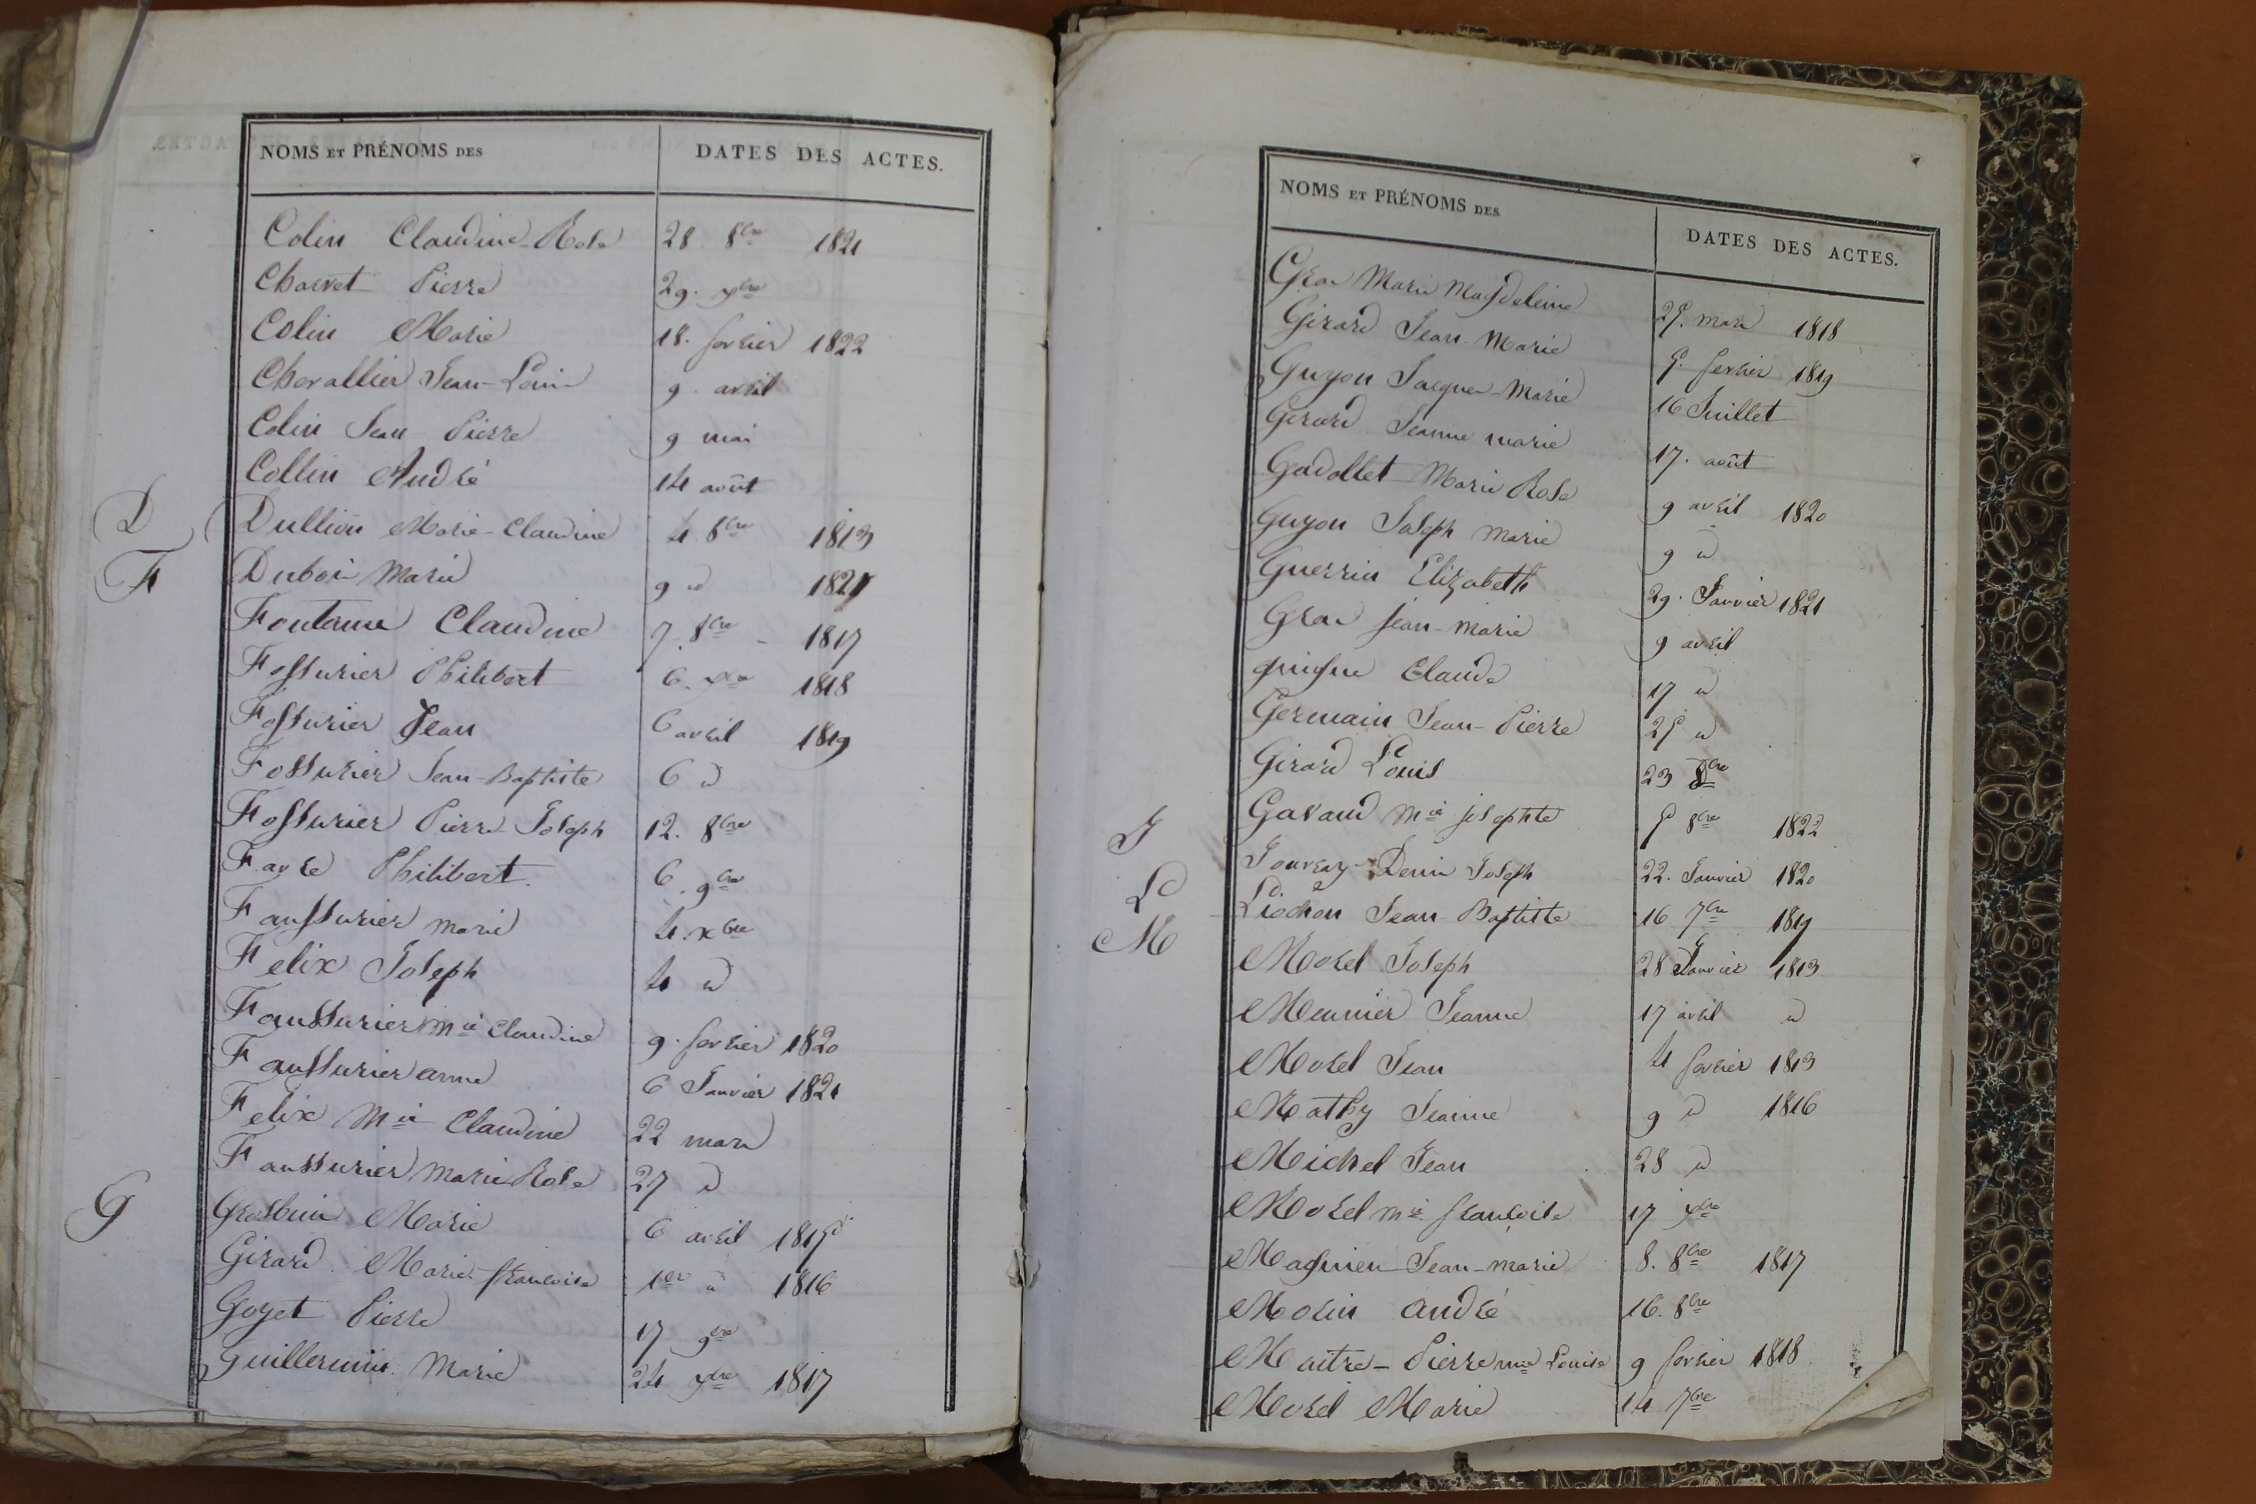 NOMS ET PRÉNOMS DES DATES DES ACTES.
Colin Claudine Rose 28 8bre 1821
Charvet Pierre 29. xbre
Colin Marie 18. fevrier 1822
Chevallier Jean-Louis 9. avril
Colin Jean Pierre 9 mai
Collin André 14 août
D Dullion Marie-Claudine 4 8bre 1813
Dubois Marie 9 d 1821
F Fontenne Claudine 7. 8bre 1817
Fossurier Philibert 6. xbre 1818
Fossurier Jean 6 avril 1819
Fossurier Jean-Baptiste 6 d
Fossurier Pierre Joseph 12. 8bre
Favre Philibert. 6. 9bre
Faussurier Marie 4. xbre
Felix Joseph 4 d
Faussurier Mie Claudine 9. fevrier 1820
Faussurier anne 6 Janvier 1821
Felix Mie Claudine 22 mars
Faussurier Marie Rose 27 d
G Grosbuis Marie 6 avril 1815
Girard Marie françoise 1er d 1816
Goyet Pierre 17 9bre
Guillermin Marie 24 xbre 1817
NOMS ET PRÉNOMS DES DATES DES ACTES.
Gras Marie Magdeleine 25. mars 1818
Girard Jean Marie 5. fevrier 1819
Guyon Jacques Marie 16 Juillet
Girard Jeanne marie 17. août
Gadollet Marie Rose 9 avril 1820
Guyon Joseph marie 9 d
Guerrin Elizabeth 29. Janvier 1821
Gras Jean-marie 9 avril
Claude 17 d
Germain Jean-Pierre 25 d
Girard Louis 23 8bre
Gavaud Mie josephte 5 8bre 1822
J Jouvray Denis Joseph 22. Janvier 1820
L Liochon Jean Baptiste 16 7bre 1819
M Morel Joseph 28 Janvier 1813
Meunier Jeanne 17 avril d
Morel Jean 4 fevrier 1813
Mathy Jeanne 9 d 1816
Michel Jean 28 d
Morel Mie françoise 17 xbre
Magnien Jean-marie 8. 8bre 1817
Morin André 16. 8bre
Maitre-Pierre Mie Louise 9 fevrier 1818
Morel Marie 14 7bre